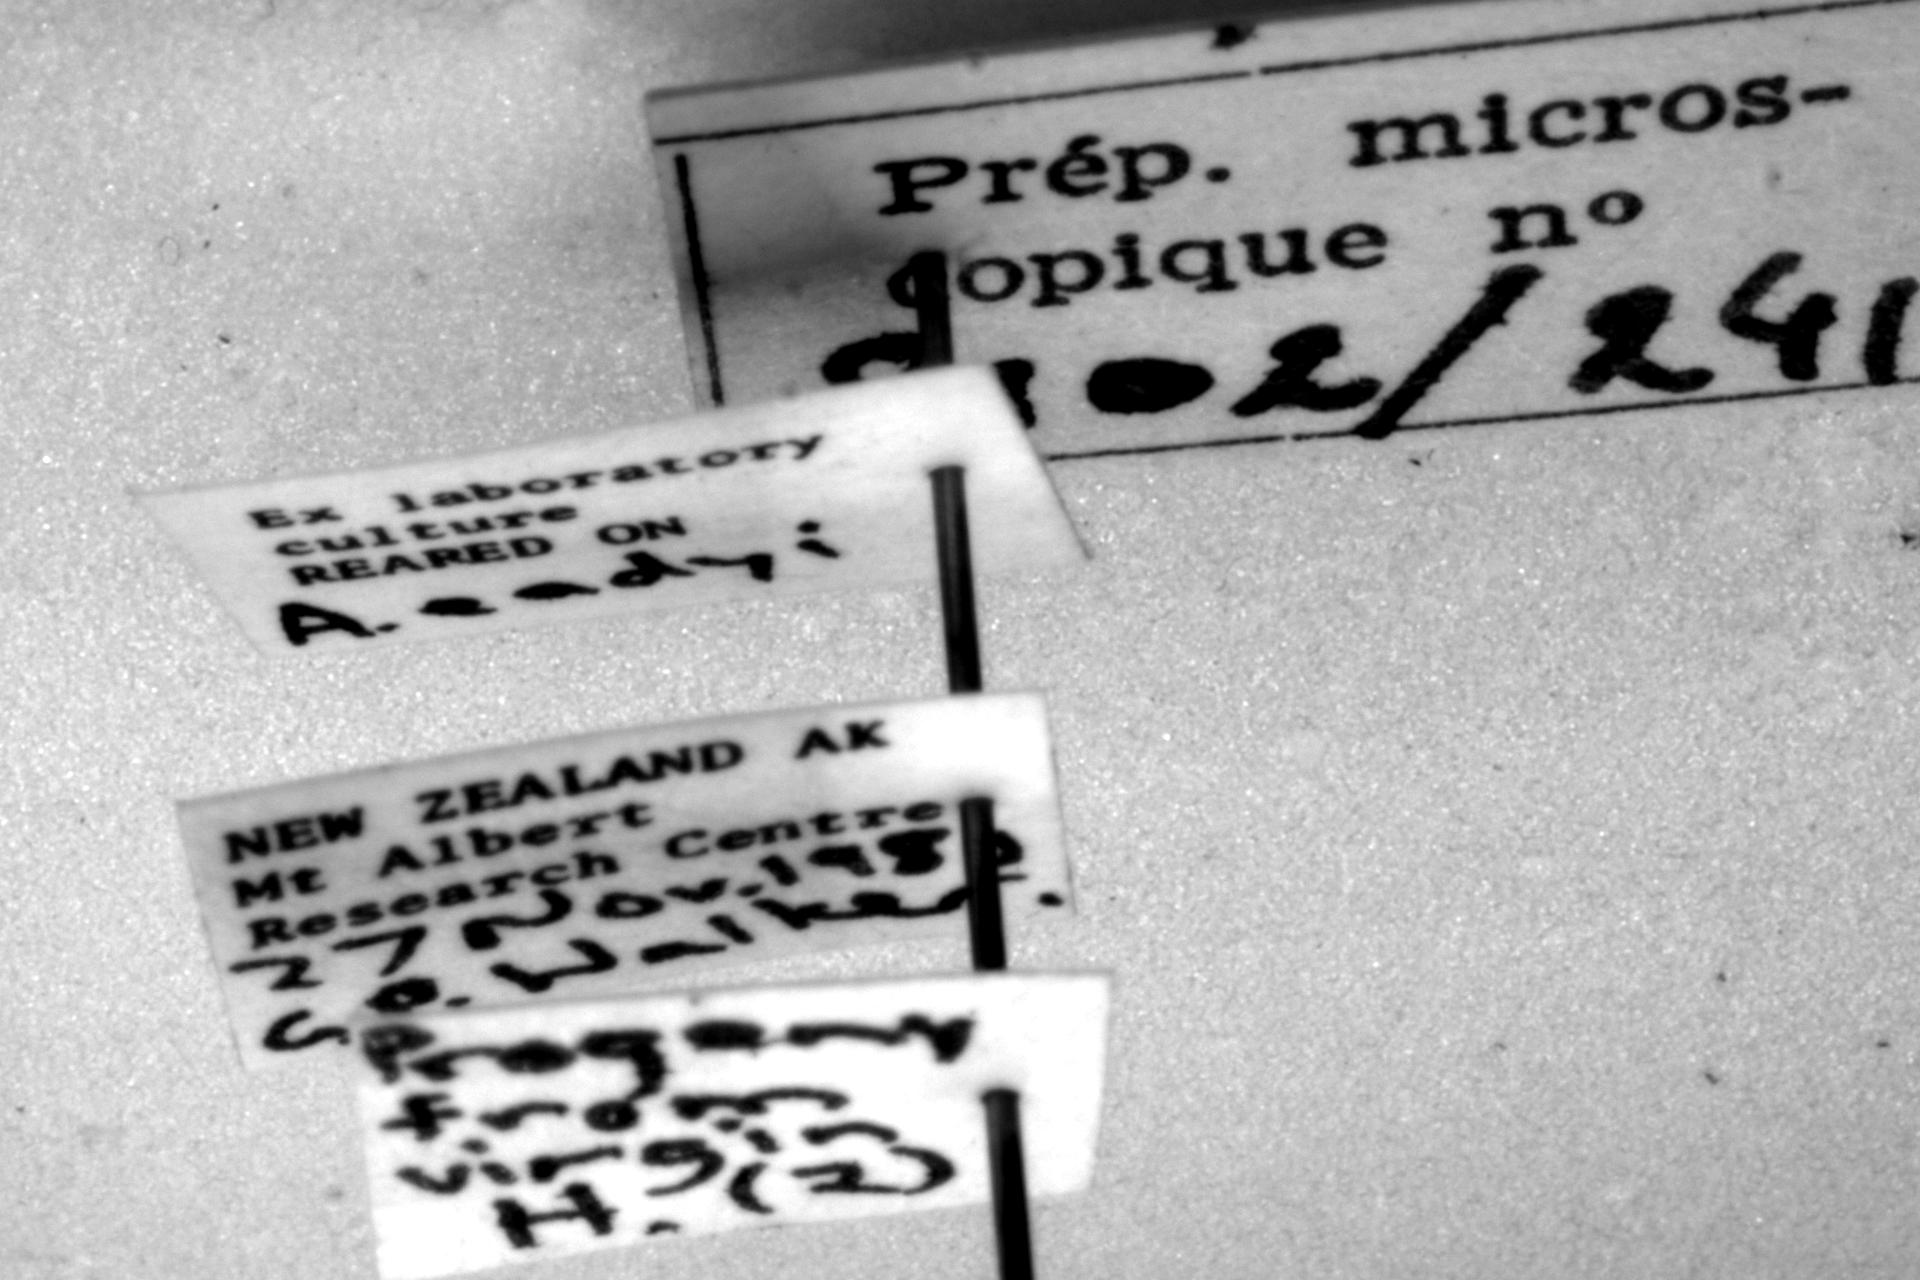 Prép. micros-
copique nº
2102/241
Ex laboratory
culture
REARED ON
A. eadyi
NEW ZEALAND AK
Mt Albert
Research Centre
27 Nov.
G. P. Walker.
Progeny
from
virgin
H. (2)